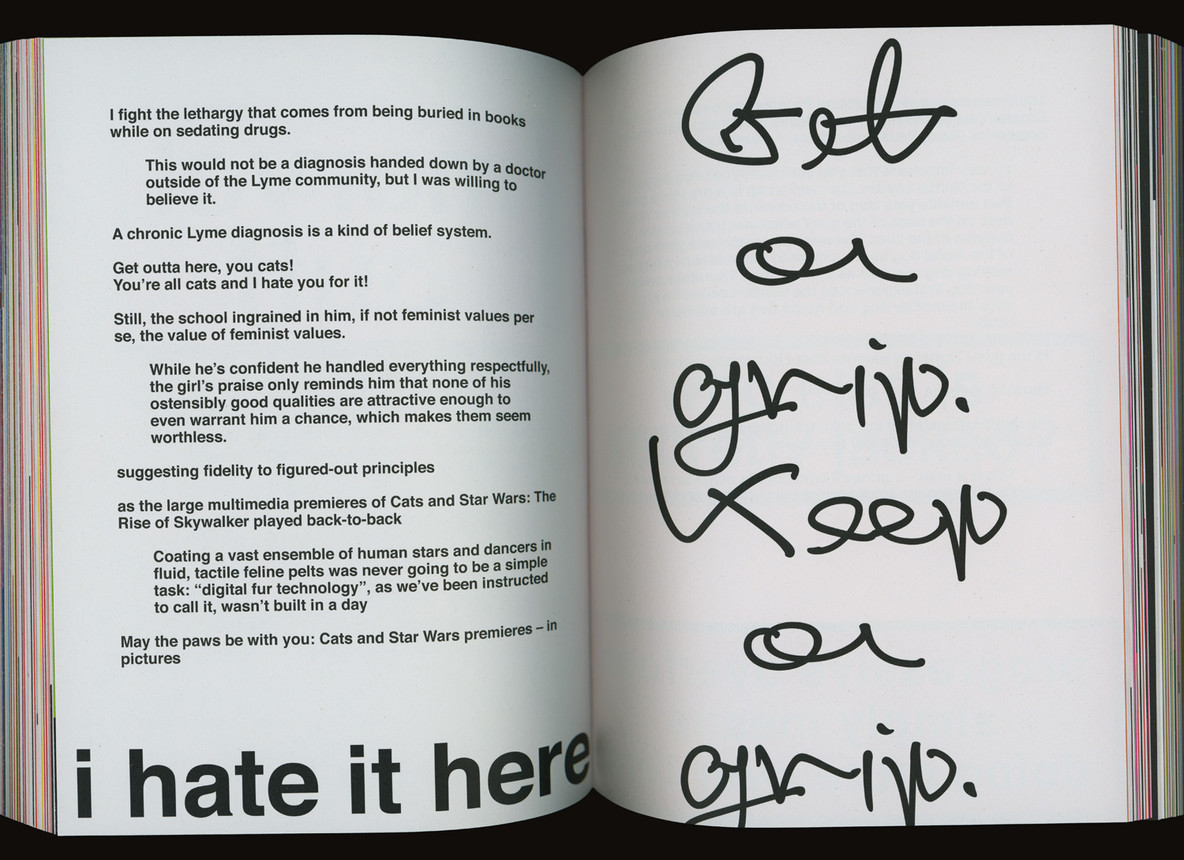 I fight the lethargy that comes from being buried in books
while on sedating drugs.
This would not be a diagnosis handed down by a doctor
outside of the Lyme community, but I was willing to
believe it.
A chronic Lyme diagnosis is a kind of belief system.
Get outta here, you cats!
You're all cats and I hate you for it!
Still, the school ingrained in him, if not feminist values per
se, the value of feminist values.
While he's confident he handled everything respectfully,
the girl's praise only reminds him that none of his
ostensibly good qualities are attractive enough to
even warrant him a chance, which makes them seem
worthless.
suggesting fidelity to figured-out principles
as the large multimedia premieres of Cats and Star Wars: The
Rise of Skywalker played back-to-back
Coating a vast ensemble of human stars and dancers in
fluid, tactile feline pelts was never going to be a simple
task: “digital fur technology”, as we've been instructed
to call it, wasn't built in a day
May the paws be with you: Cats and Star Wars premieres – in
pictures
i hate it here
Get
or
grip.
Keep
or
grip.